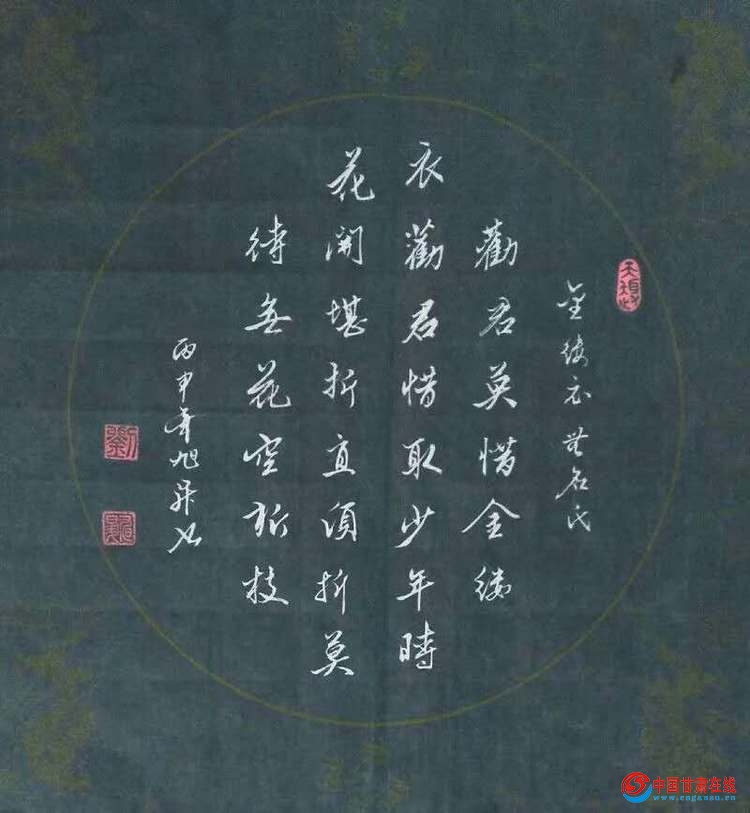 金缕衣 無名氏
勸君莫惜金缕
衣勸君惜取少年時
花開堪折直須折莫
待無花空折枝
丙申年旭升书
中国甘肃在线
www.cngansu.cn